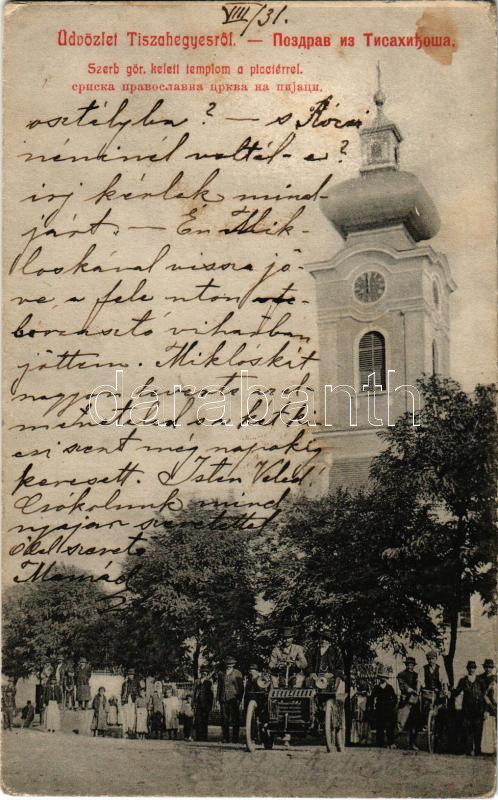 VIII/31.
Üdvözlet Tiszahegyesről. — Поздрав из Тисахиђоша.
Szerb gör. keleti templom a piactérrel.
српска православна црква на пијаци.
osztályba? — s Rózsi
néninél voltál-e?
irj kérlek mind-
járt. — Én Mik-
lóskával vissza jö-
ve, a fele uton
borzasztó viharban
jöttem. Miklóskát
nagyon
még napokig
keresett. Isten Veled!
Csókolunk mind
nyájan szeretettel
ölel szerető
Mamád
darabanth